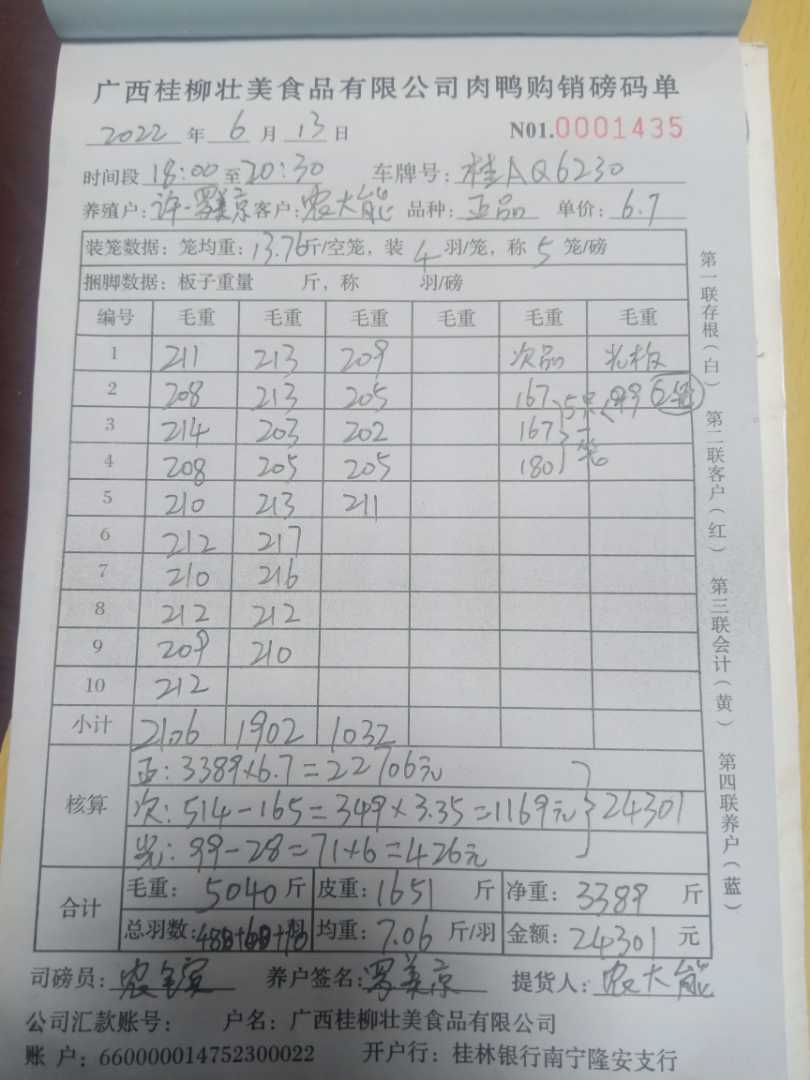 广西桂柳壮美食品有限公司肉鸭购销磅码单
2022 年 6 月 13 日 N01.0001435
时间段 18:00 至 20:30 车牌号: 桂AQ6230
养殖户: 许-罗美京 客户: 农大能 品种: 正品 单价: 6.7
装笼数据: 笼均重: 13.76 斤/空笼, 装 4 羽/笼, 称 5 笼/磅
捆脚数据: 板子重量 斤, 称 羽/磅
编号 毛重 毛重 毛重 毛重 毛重 毛重
1 211 213 209 次品 光板
2 208 213 205 167 5只 99
3 214 203 202 167 一笼
4 208 205 205 180
5 210 213 211
6 212 217
7 210 216
8 212 212
9 209 210
10 212
小计 2106 1902 1032
核算
正: 3389×6.7=22706元
次: 514-165=349×3.35=1169元 24301
光: 99-28=71×6=426元
合计
毛重: 5040 斤 皮重: 1651 斤 净重: 3389 斤
总羽数: 480+60+10 羽 均重: 7.06 斤/羽 金额: 24301 元
司磅员: 农 养户签名: 罗美京 提货人: 农大能
公司汇款账号: 户名: 广西桂柳壮美食品有限公司
账 户: 660000014752300022 开户行: 桂林银行南宁隆安支行
第一联存根(白) 第二联客户(红) 第三联会计(黄) 第四联养户(蓝)